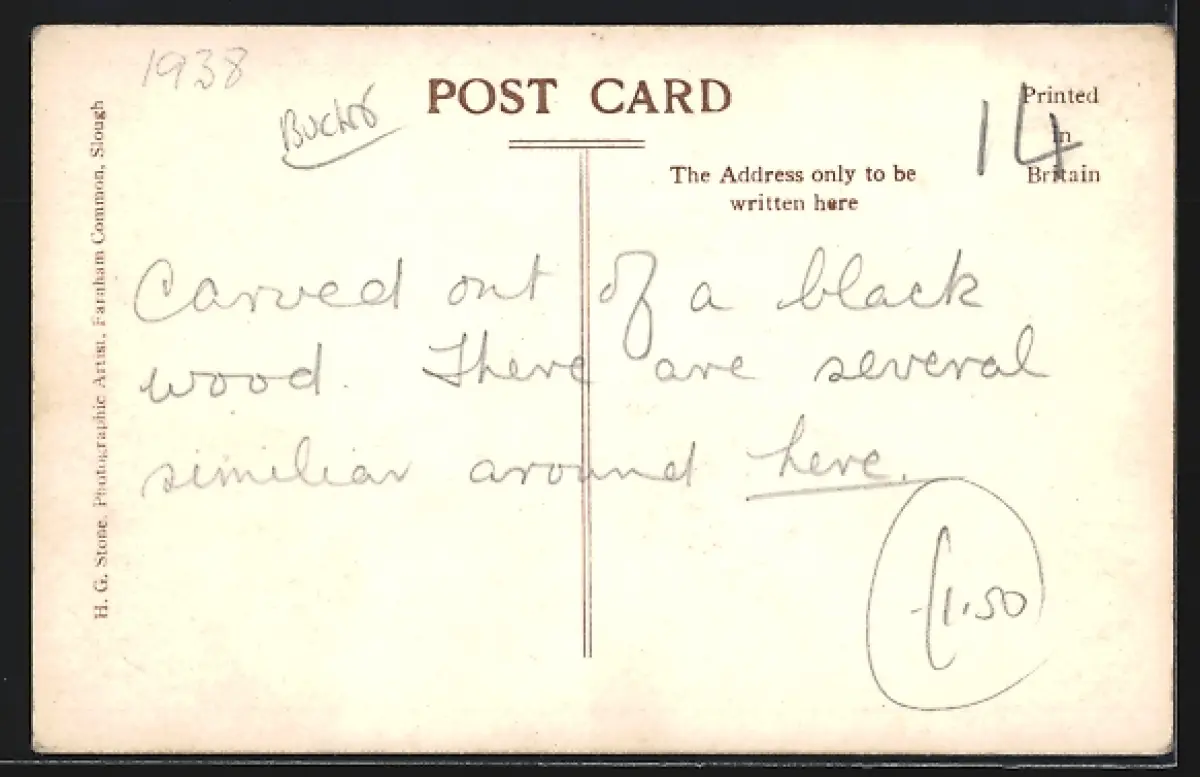 1938
Bucks
POST CARD
14
Printed
in
Britain
The Address only to be
written here
H. G. Stone, Photographic Artist, Farnham Common, Slough
Carved out of a black
wood. There are several
similiar around here.
£1.50